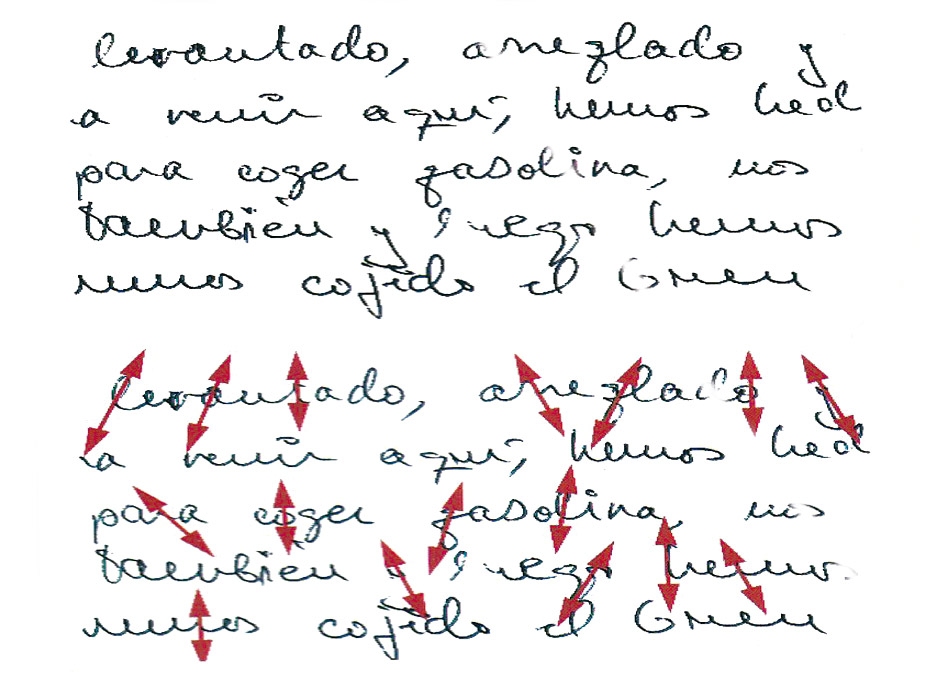 levantado, arreglado y
a venir aquí, hemos
para coger gasolina, nos
también y luego hemos
cojido el
levantado, arreglado y
a venir aquí, hemos
para coger gasolina, nos
también y luego hemos
cojido el